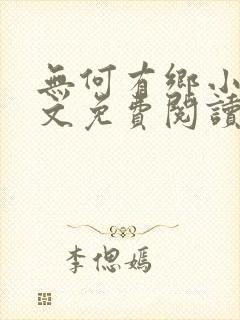 無何有鄉小
文免費閱讀
李偲嫣